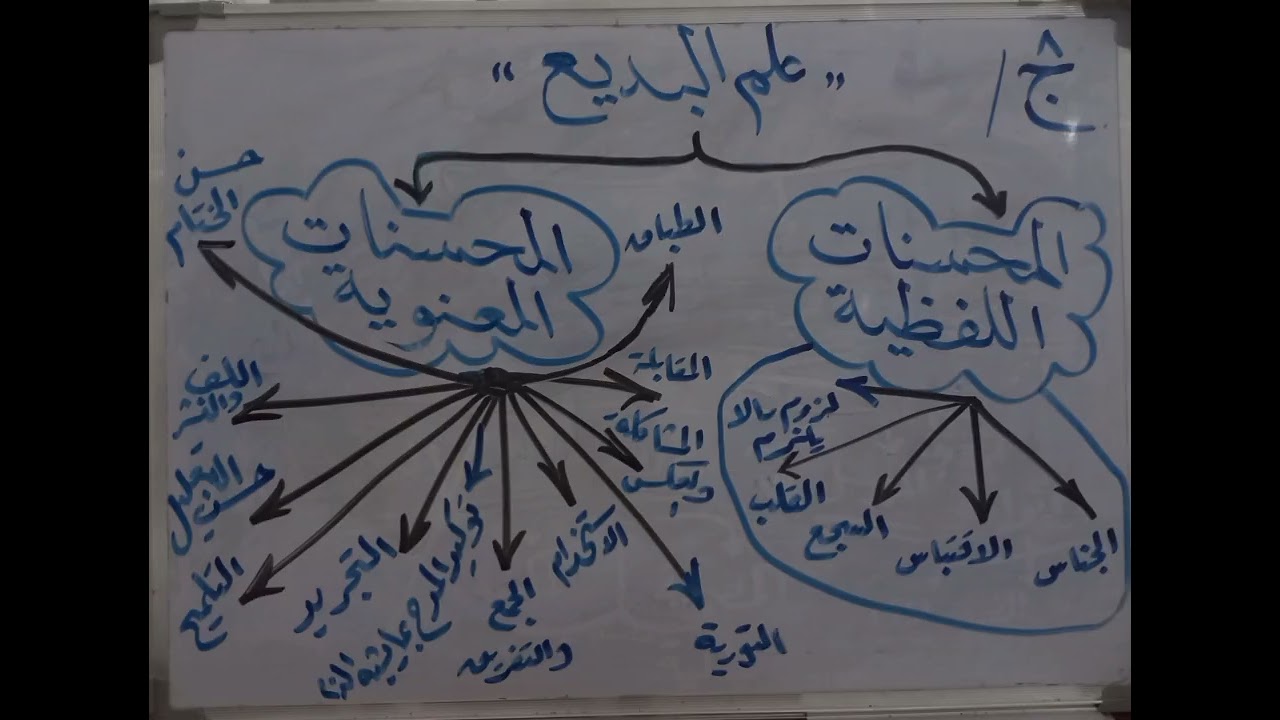 ج٨ /
"علم البديع"
المحسنات
اللفظية
الجناس
الاقتباس
السجع
القلب
لزوم مالا
يلتزم
المحسنات
المعنوية
الطباق
المقابلة
المشاكلة
والعكس
التورية
الاستخدام
الجمع
والتفريق
توكيد المدح بما يشبه الذم
التجريد
التلميح
حسن التعليل
اللف
والنشر
حسن
الختام